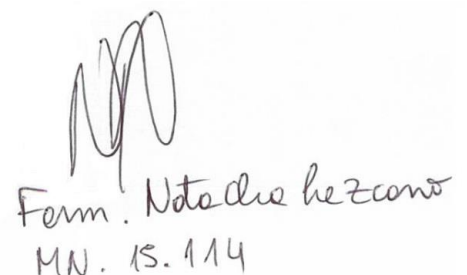 Farm. Natacha Lezcano
MN. 15.114